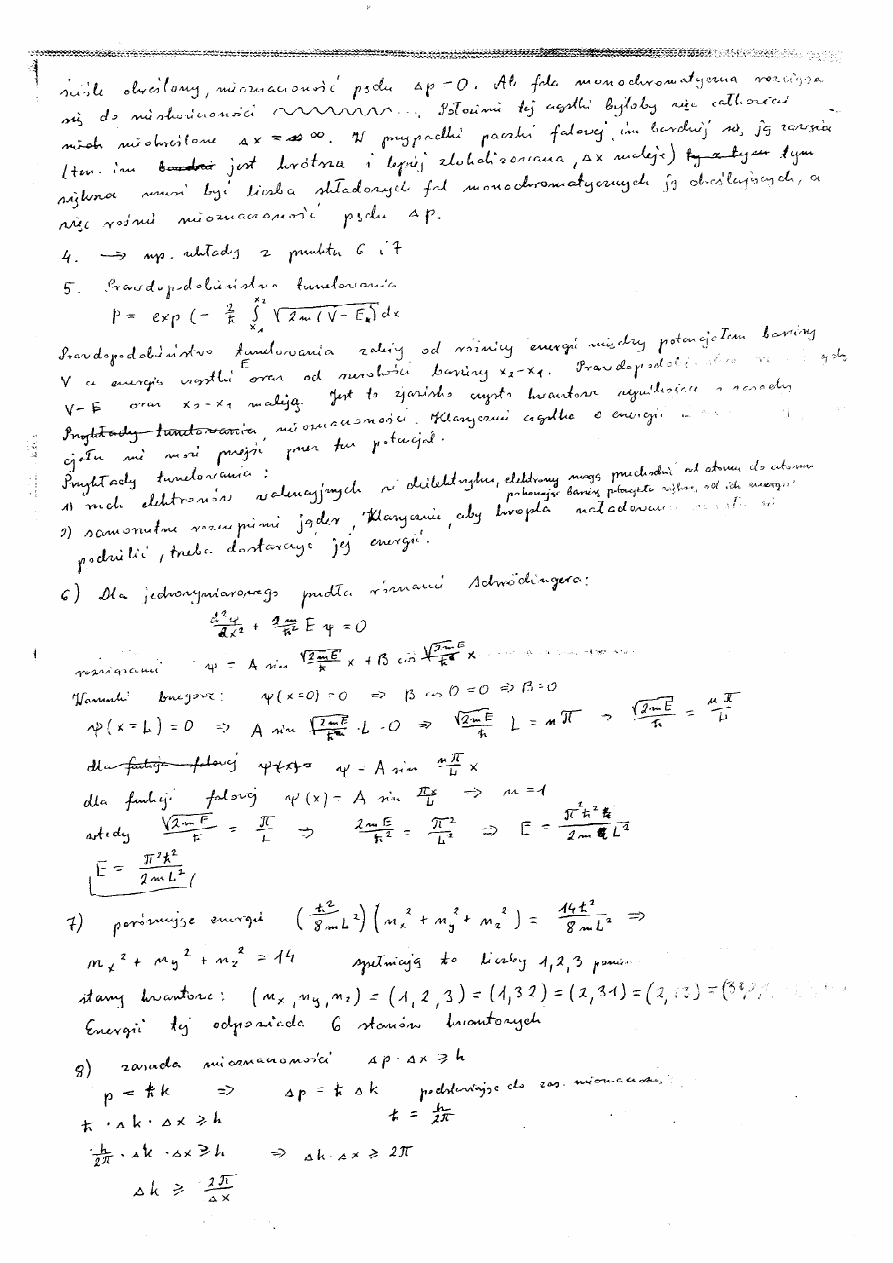 ściśle określony, nieoznaczoność pędu Δp = 0. Ale fala monochromatyczna rozciąga
się do nieskończoności ... Położenie tej cząstki byłoby więc całkowicie
nieokreślone Δx = ∞. W przypadku paczki falowej, im bardziej się ją zawęża
(tzn. im jest krótsza i lepiej zlokalizowana, Δx maleje) tym
większa musi być liczba składowych fal monochromatycznych ją określających, a
więc rośnie nieoznaczoność pędu Δp.
4. → np. układy z punktu 6 i 7
5. Prawdopodobieństwo tunelowania
P = exp (- 2/ħ ∫_{x₁}^{x₂} √(2m(V-E)) dx
Prawdopodobieństwo tunelowania zależy od różnicy energii między potencjałem bariery
V a energią cząstki E oraz od szerokości bariery x₂-x₁. gdy
V-E oraz x₂-x₁ maleją. Jest to zjawisko czysto kwantowe wynikające z zasady
nieoznaczoności. Klasycznie cząstka o energii
nie może przejść przez ten potencjał.
Przykłady tunelowania:
1) ruch elektronów walencyjnych w dielektryku, elektrony mogą przechodzić od atomu do atomu
pokonując barierę potencjału wyższą od ich energii
2) samorzutne rozszczepienie jąder, Klasycznie, aby kropla naładowana
podzielić, trzeba dostarczyć jej energii.
6) Dla jednowymiarowego pudła równanie Schrödingera:
d²ψ/dx² + 2m/ħ² E ψ = 0
rozwiązanie ψ = A sin √(2mE)/ħ x + B cos √(2mE)/ħ x
Warunki brzegowe: ψ(x=0) = 0 => B cos 0 = 0 => B = 0
ψ(x=L) = 0 => A sin √(2mE)/ħ · L = 0 => √(2mE)/ħ L = nπ => √(2mE)/ħ = nπ/L
ψ = A sin nπ/L x
dla funkcji falowej ψ(x) = A sin πx/L => n = 1
wtedy √(2mE)/ħ = π/L => 2mE/ħ² = π²/L² => E = π²ħ²/2mL²
E = π²ħ²/2mL²
7) porównując energie (ħ²/8mL²)(nₓ² + n_y² + n_z²) = 14ħ²/8mL² =>
nₓ² + n_y² + n_z² = 14 spełniają to liczby 1,2,3
stany kwantowe: (nₓ, n_y, n_z) = (1,2,3) = (1,32) = (2,31) = (2,13) =
Energii tej odpowiada 6 stanów kwantowych
8) zasada nieoznaczoności Δp · Δx ≥ h
p = ħk => Δp = ħ Δk podstawiając do zas. nieoznaczoności
ħ · Δk · Δx ≥ h ħ = h/2π
h/2π · Δk · Δx ≥ h => Δk · Δx ≥ 2π
Δk ≥ 2π/Δx